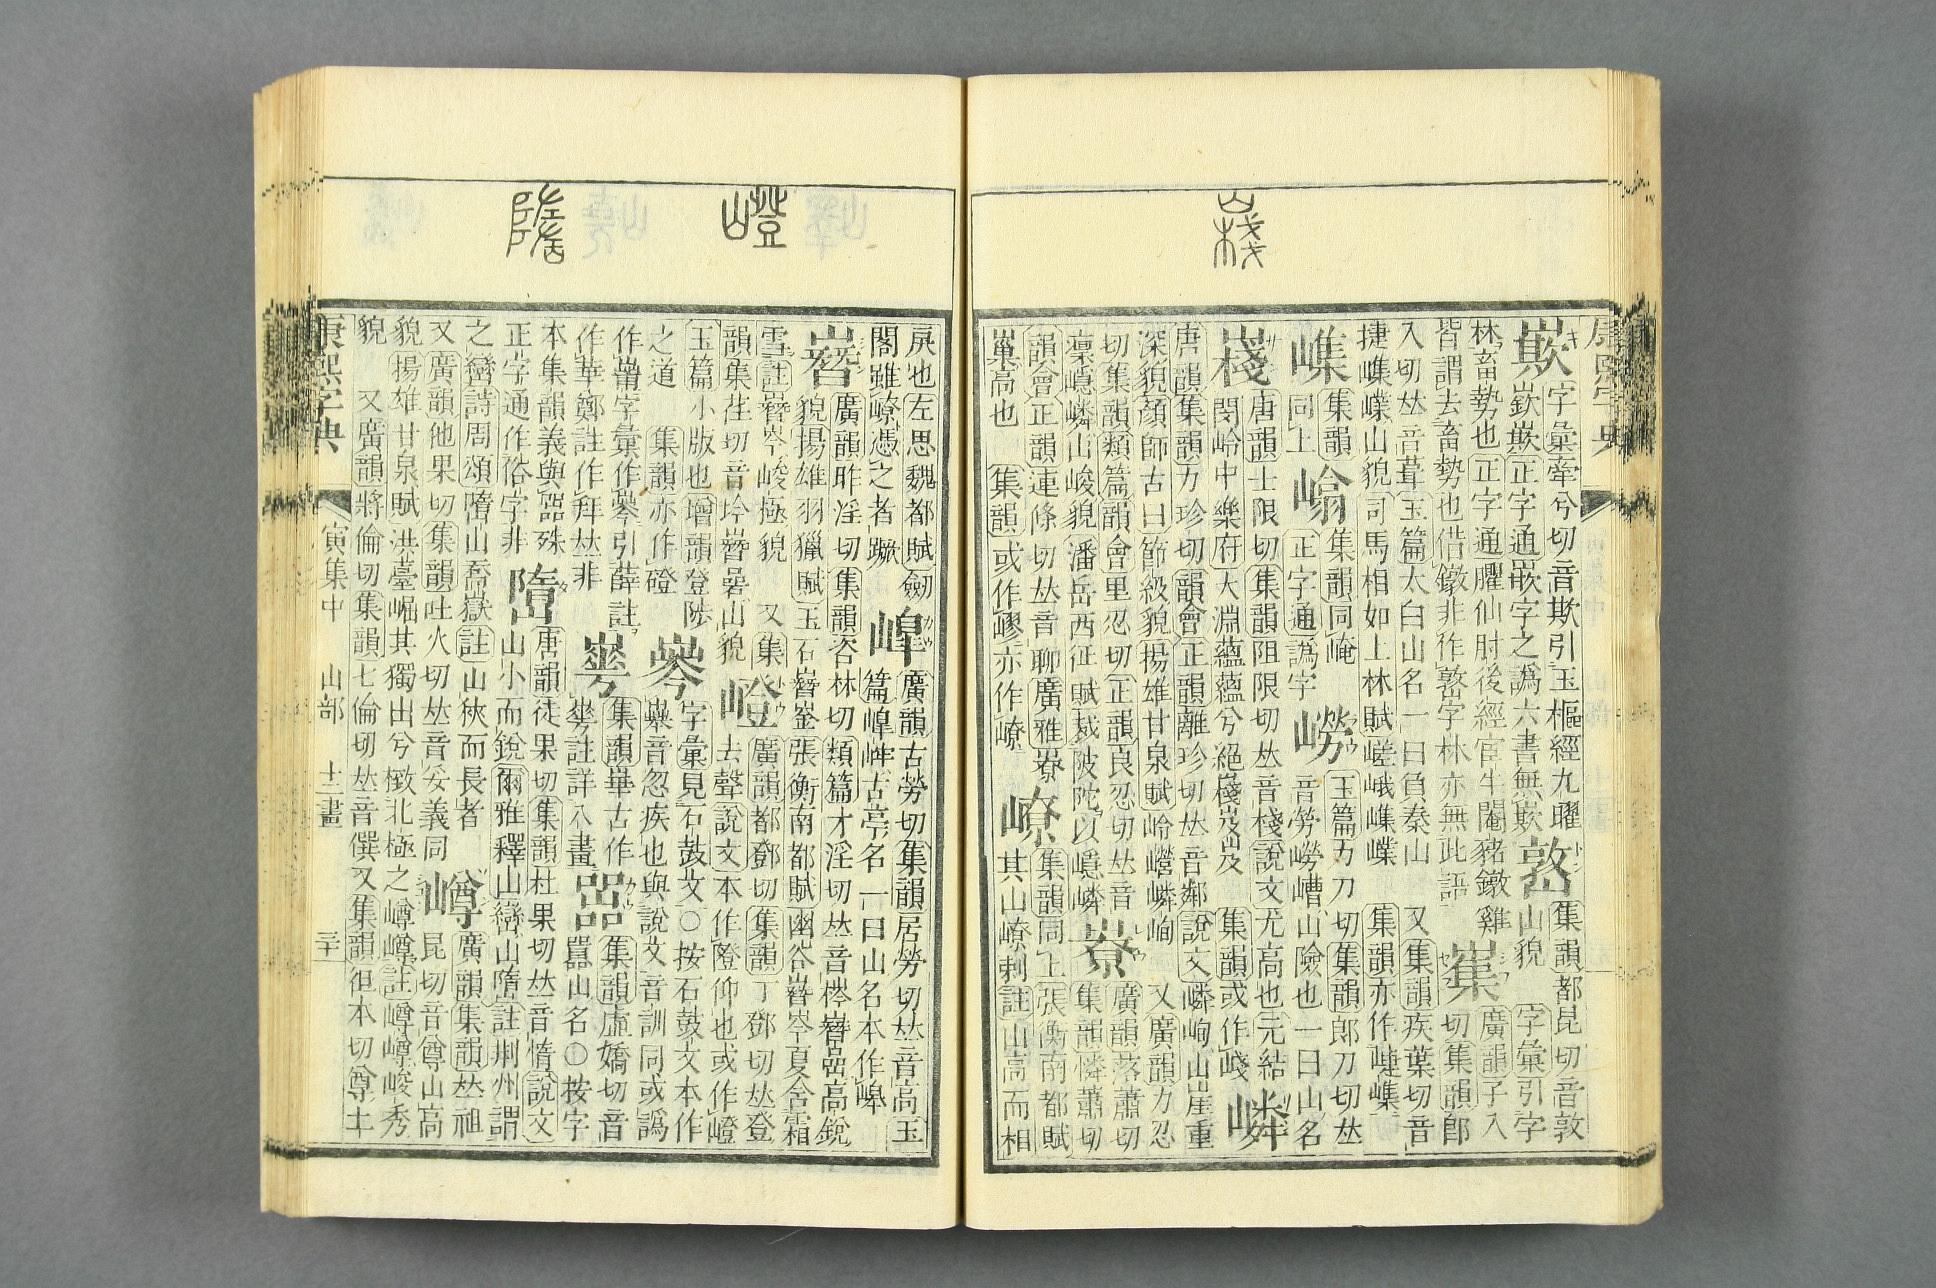 康熙字典
嶔 字彙牽兮切音欺引玉樞經九曜
嶔嶔正字通嵌字之譌六書無欺
集韻都昆切音敦
山貌 字彙引字
林畜勢也正字通臞仙肘後經宦牛閹豬鐓雞
皆謂去畜勢也偕鐓非作字林亦無此語
廣韻子入
切集韻郎
入切𠀤音葺玉篇太白山名一曰負秦山 又集韻疾葉切音
捷嶕嶫山貌司馬相如上林賦嵯峨嶕嶫 集韻亦作
集韻
同上
集韻同崦
正字通譌字
嶗
玉篇力刀切集韻郎刀切𠀤
音勞嶗嶆山險也一曰山名
嶘 唐韻士限切集韻阻限切𠀤音棧說文尤高也元結
閔嶺中樂府大淵蘊蘊兮絕嶘岌岌 集韻或作㟞
嶙
唐韻集韻力珍切韻會正韻離珍切𠀤音鄰說文嶙峋山崖重
深貌顏師古曰節級貌揚雄甘泉賦岭巆嶙峋 又廣韻力忍
切集韻類篇韻會里忍切正韻良忍切𠀤音
凜嶾嶙山峻貌潘岳西征賦裁陂陀以嶾嶙
嶚
廣韻落蕭切
集韻憐蕭切
韻會正韻連條切𠀤音聊廣雅嶚
巢高也 集韻或作嵺亦作嶚
嶚
集韻同上張衡南都賦
其山嶚剌註山高而相
戾也左思魏都賦劒
閣雖嶚憑之者蹶
嶂
廣韻古勞切集韻居勞切𠀤音高玉
篇嶂古亭名一曰山名本作
嶜 廣韻昨淫切集韻咨林切類篇才淫切𠀤音梣嶜嵒高銳
貌揚雄羽獵賦玉石嶜崟張衡南都賦幽谷嶜岑夏含霜
雪註嶜岑峻極貌 又集
韻集荏切音坅嶜碞山貌
嶝
廣韻都鄧切集韻丁鄧切𠀤登
去聲說文本作隥仰也或作嶝
玉篇小版也增韻登陟
之道 集韻亦作磴
字彙見石鼓文〇按石鼓文本作
音忽疾也與說文音訓同或譌
作字彙作引薛註
作華鄭註作拜𠀤非
集韻華古作
註詳八畫
嚻
集韻虛嬌切音
嚻山名〇按字
本集韻義與嚻殊
正字通作俗字非
嶞
唐韻徒果切集韻杜果切𠀤音惰說文
山小而銳爾雅釋山巒山嶞註荆州謂
之巒詩周頌嶞山喬嶽註山狹而長者
又廣韻他果切集韻吐火切𠀤音妥義同
嶟
廣韻集韻𠀤祖
昆切音尊山高
貌揚雄甘泉賦洪臺崛其獨出兮㨖北極之嶟嶟註嶟嶟峻秀
貌 又廣韻將倫切集韻七倫切𠀤音僎又集韻徂本切尊上
康熙字典 寅集中 山部 十二畫 三十